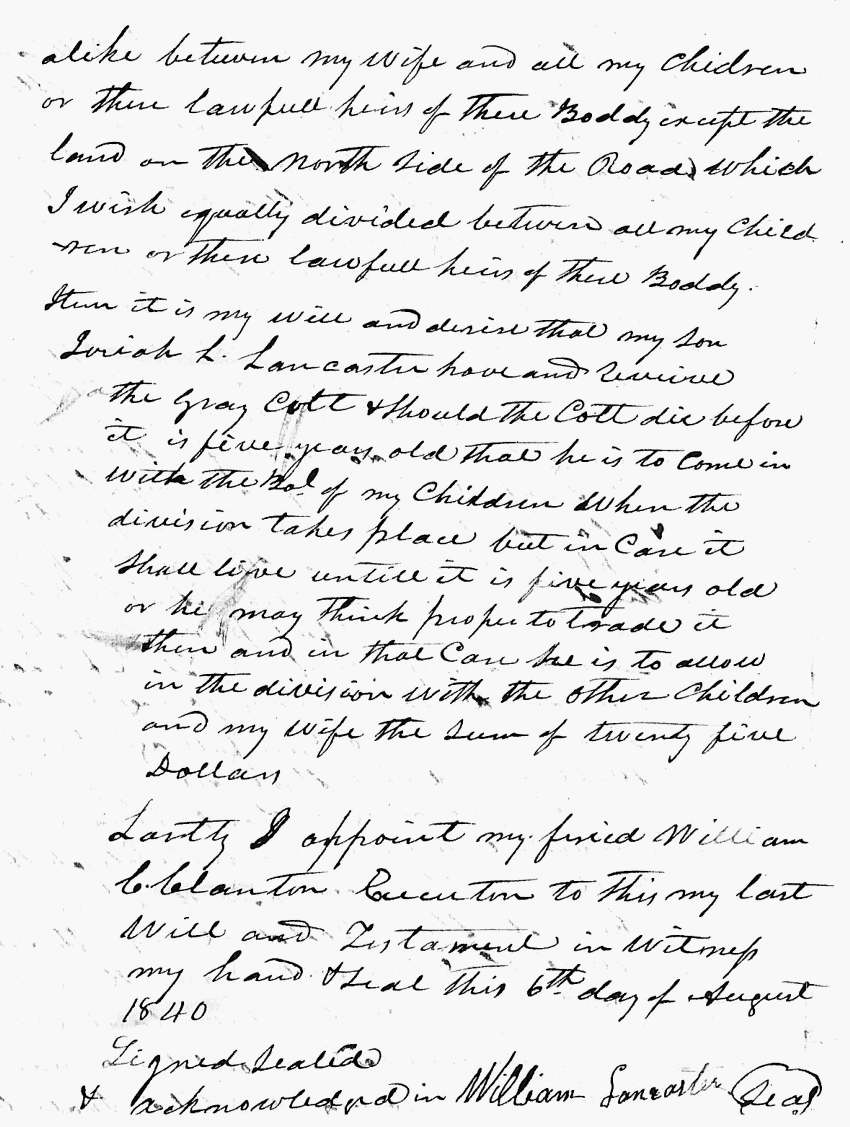 alike between my Wife and all my Children
or there lawfull heirs of there Boddy except the
land on the North Side of the Road which
I wish equally divided between all my Child
ren or there lawfull heirs of there Boddy.
Item it is my will and desire that my Son
Josiah L. Lancaster have and receive
the Gray Colt & Should the Colt die before
it is five years old that he is to Come in
with the Bal of my Children When the
division takes place but in Case it
Shall live untill it is five years old
or he may think proper to trade it
then and in that Case he is to allow
in the division with the other Children
and my Wife the Sum of twenty five
Dollars
Lastly I appoint my friend William
C. Clanton Executor to this my last
Will and Testament in Witness
my hand & Seal this 6th day of August
1840
Signed Sealed
& acknowledged in William Lancaster Seal